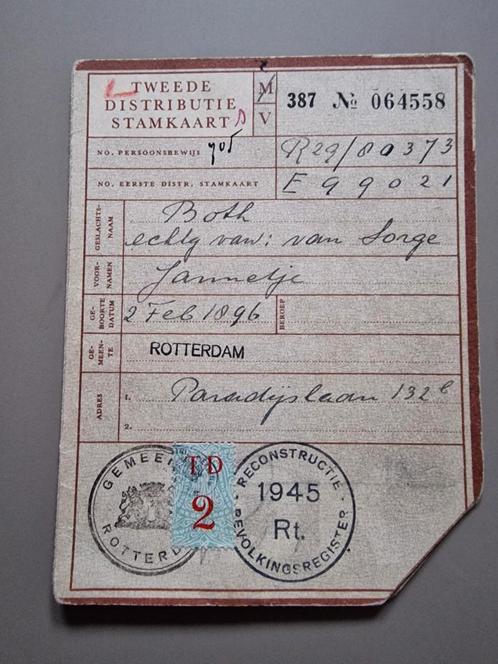 TWEEDE
DISTRIBUTIE
STAMKAART
M
V
387 No 064558
NO. PERSOONSBEWIJS
R29/80373
NO. EERSTE DISTR. STAMKAART
E 99021
GESLACHTS-
NAAM
Both
echtg van: van Sorge
VOOR-
NAMEN
Jannetje
GE-
BOORTE
DATUM
2 Feb 1896
BEROEP
GE-
MEEN-
TE
ROTTERDAM
ADRES
1.
Paradijslaan 132b
2.
GEMEE
ROTTERD
TD
2
RECONSTRUCTIE
1945
Rt.
BEVOLKINGSREGISTER